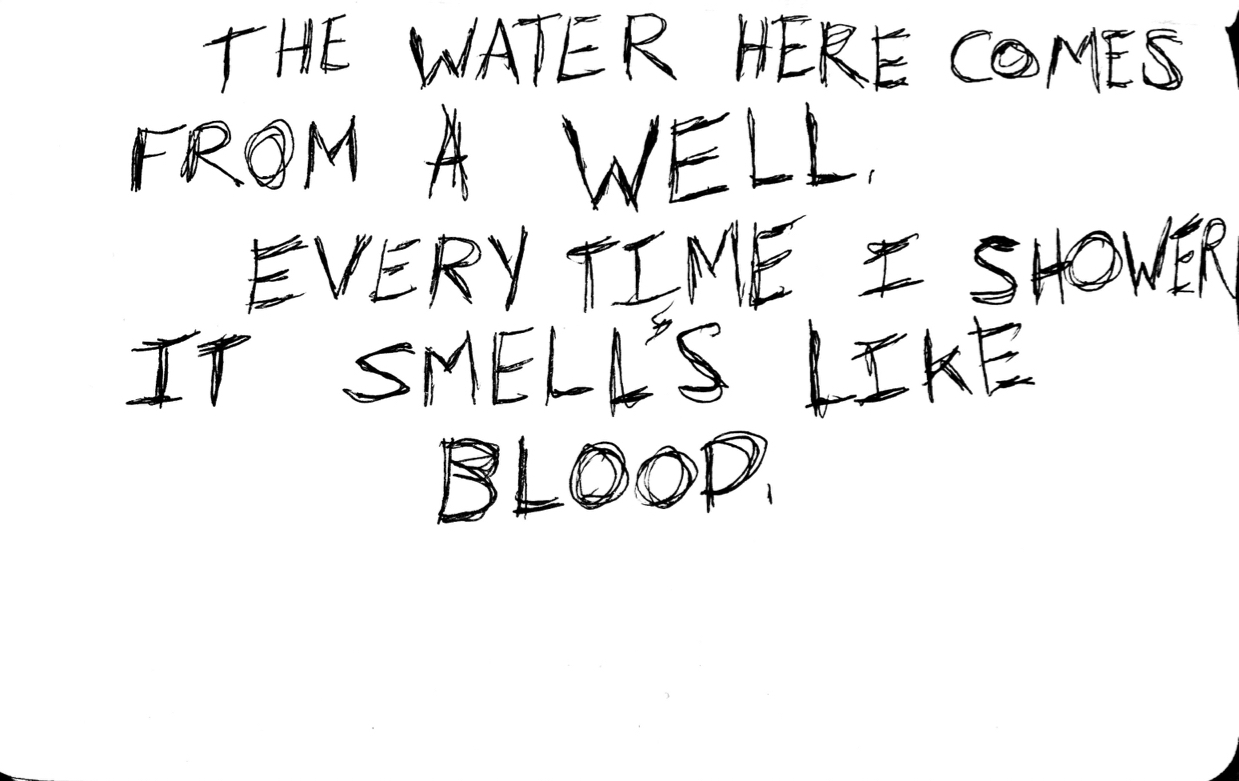 THE WATER HERE COMES
FROM A WELL.
EVERY TIME I SHOWER
IT SMELL'S LIKE
BLOOD.